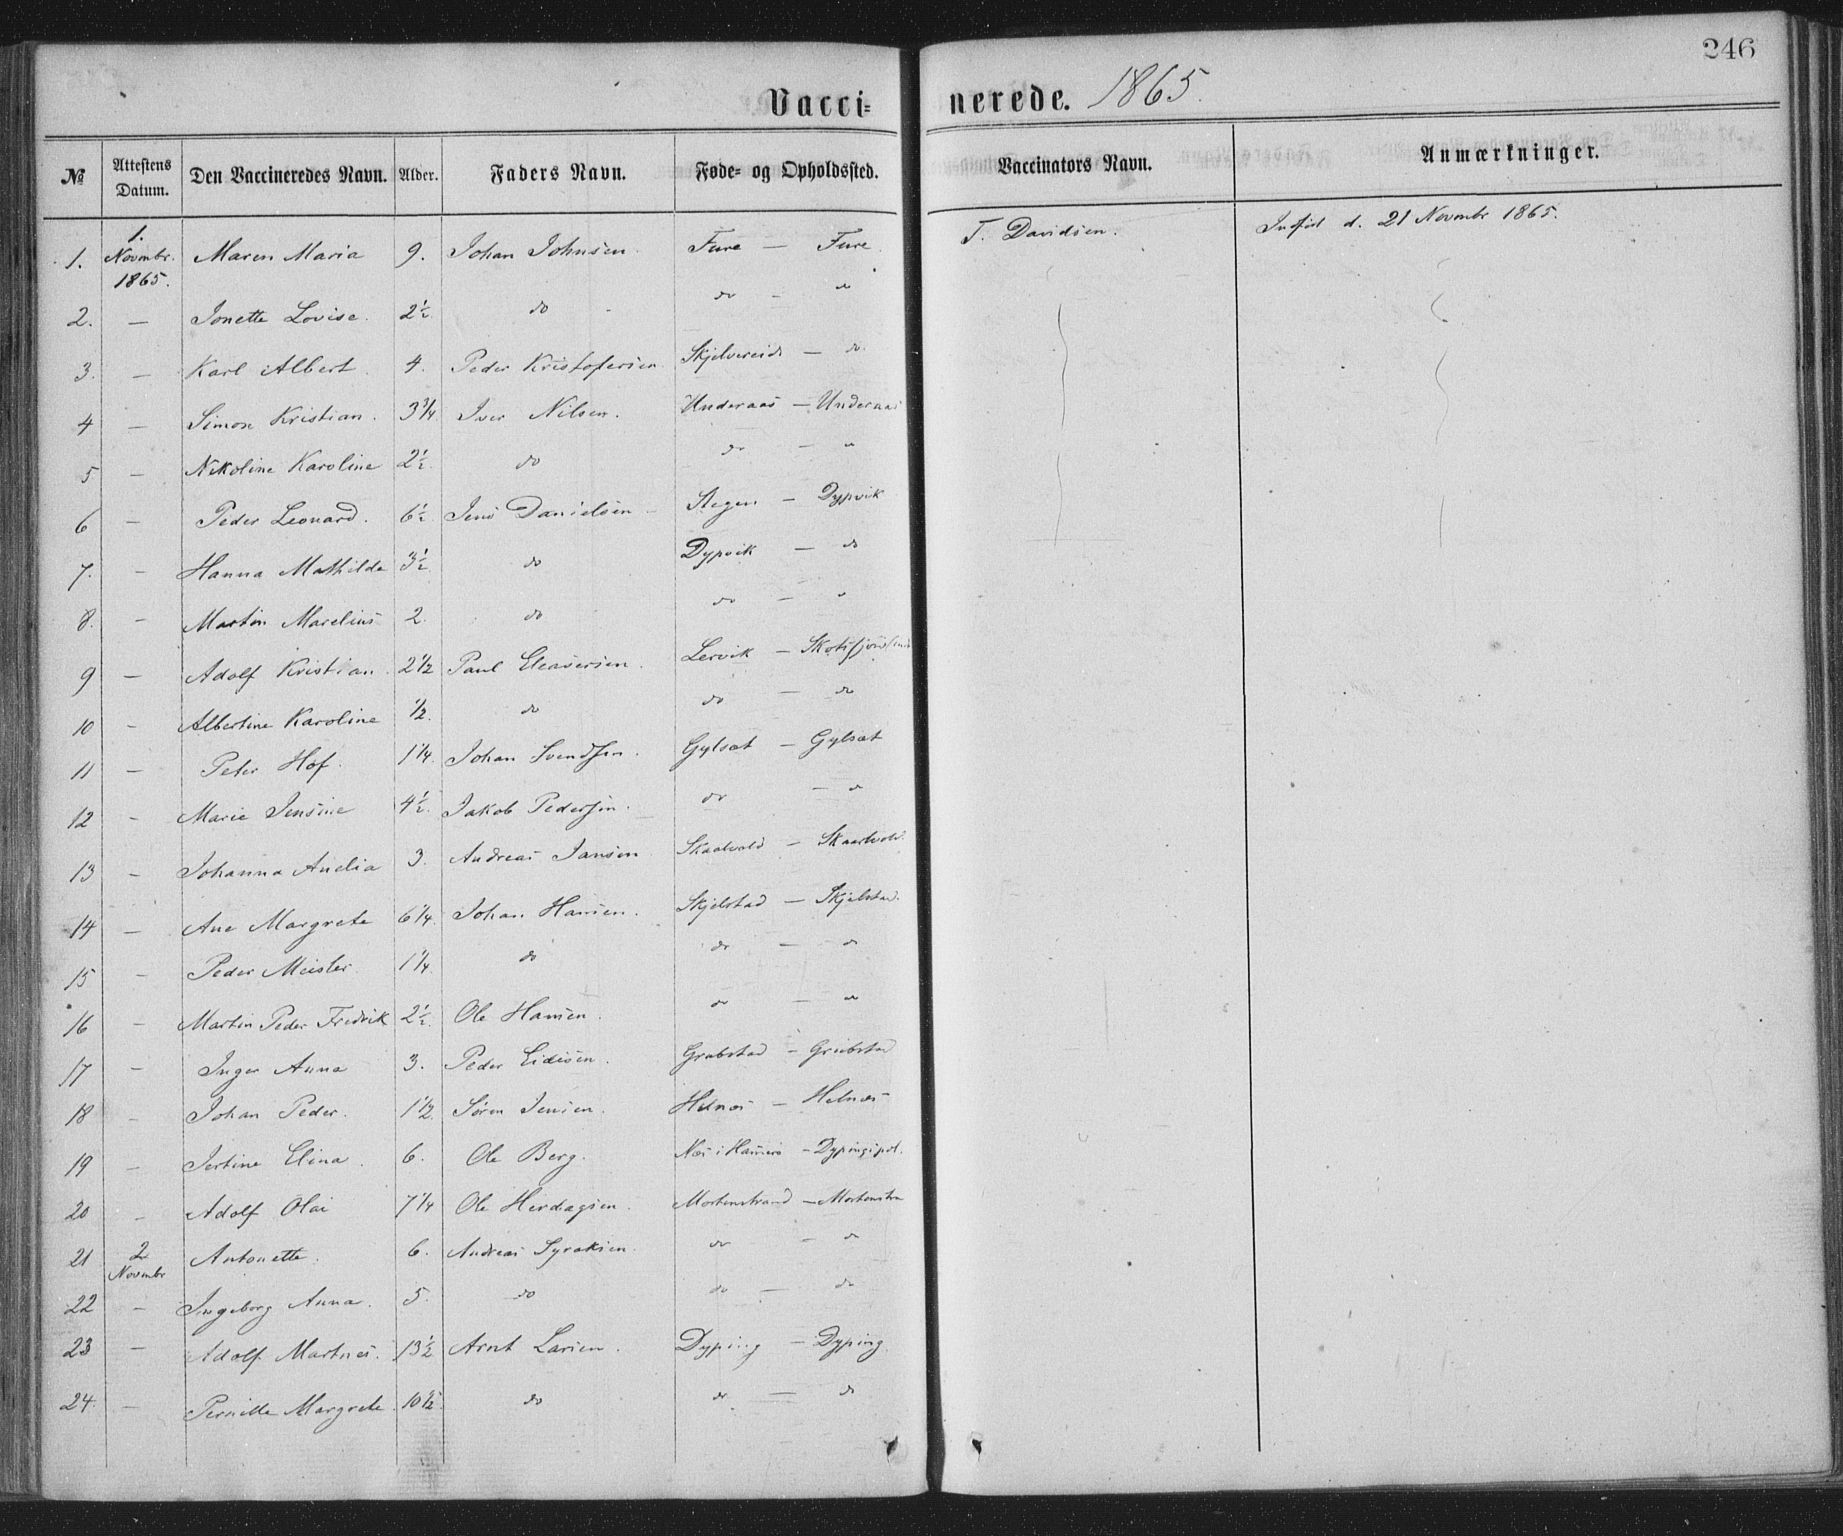 246
Vaccinerede. 1865.
№ | Attestens Datum. | Den Vaccineredes Navn. | Alder. | Faders Navn. | Føde- og Opholdssted. | Vaccinators Navn. | Anmærkninger.
1. | 1. Novmbr. 1865. | Maren Maria | 9. | Johan Johnsen. | Fure — Fure | T. Davidsen. | d. 21 Novmbr 1865.
2. | — | Jonette Lovise. | 2½ | do | do - "
3. | — | Karl Albert. | 4. | Peder Kristofersen | Skjelvereid — do
4 | — | Simon Kristian. | 3¾ | Iver Nilsen. | Underaas — Underaas
5 | — | Nikoline Karoline | 2½ | do | do — "
6 | — | Peder Leonard. | 6½ | Jens Danielsen | Stegen — Dypvik
7. | — | Hanna Mathilde | 3½ | do | Dypvik — do
8. | — | Martin Marelius | 2. | do | do — "
9 | — | Adolf Kristian. | 2½ | Paul Eleasersen. | Lervik —
10 | — | Albertine Karoline | ½. | do | do — do
11 | — | Peter Hof. | 1¼. | Johan Svendsen. | Gylsæt — Gylsæt
12 | — | Marie Jensine | 4½. | Jakob Pedersen. | do — "
13 | — | Johanna Anelia | 3. | Andreas Jansen | Skaalvold — Skaalvold.
14 | — | Ane Margrete | 6¼. | Johan Hansen. | Skjelstad — Skjelstad.
15 | — | Peder Meister | 1¼. | do | do — "
16 | — | Martin Peder Fredrik | 2½. | Ole Hansen. | do — "
17 | — | Inger Anna | 3. | Peder Eidisen. | Grøbstad — Grøbstad
18 | — | Johan Peder. | 1½. | Søren Jensen. | Helnes — Helnes
19 | — | Jertine Elina. | 6. | Ole Berg. | Nes i Hamerø —
20 | — | Adolf Olai | 7¼ | Ole Herdagsen. | Mortenstrand — Mortenstra
21 | 2 Novmbr | Antonette. | 6. | Andreas Syraksen. | do — do
22 | — | Ingeborg Anna. | 5. | do | do — do
23 | — | Adolf Martnes. | 13½ | Arnt Larsen. | Dyping — Dyping
24. | — | Pernille Margrete. | 10½ | do | do — do